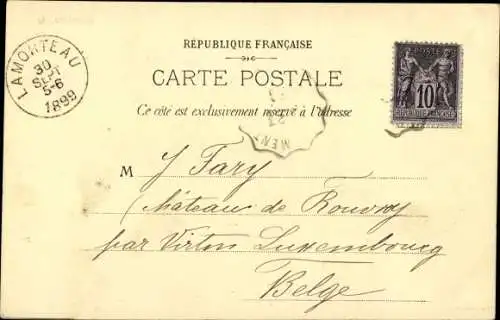 LAMORTEAU
30
SEPT
5-6
1899
RÉPUBLIQUE FRANÇAISE
CARTE POSTALE
Ce côté est exclusivement réservé à l'adresse
POSTE
10
RÉPUBLIQUE FRANÇAISE
M J. Fary
Château de Rouvroy
par Virton Luxembourg
Belge